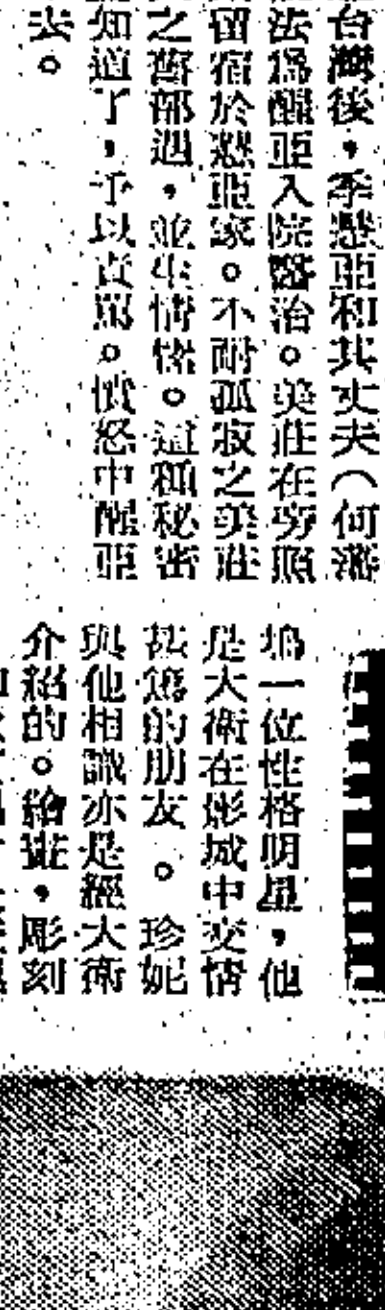 台灣後，季慧亞和其丈夫（何藩
法為醒亞入院醫治。美莊在旁照
留宿於慧亞家。不耐孤寂之美莊
之舊部遇，並生情愫。這種秘密
知道了，予以責罵。憤怒中醒亞
去。
塢一位性格明星，他
是大衛在影城中交情
甚篤的朋友。珍妮
與他相識亦是經大衛
介紹的。繪畫，彫刻